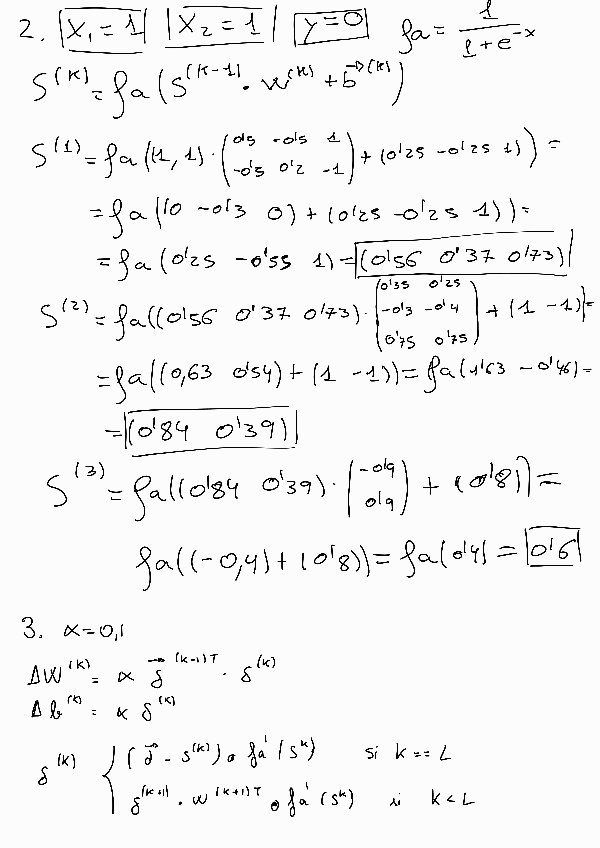 2. X₁ = 1 X₂ = 1 y = 0 fa = 1/(1+e^-x)
S^(k) = fa(S^(k-1) · W^(k) + b^(k))
S^(1) = fa((1, 1) · (0'5 -0'5 1 / -0'5 0'2 -1) + (0'25 -0'25 1)) =
= fa((0 -0'3 0) + (0'25 -0'25 1)) =
= fa(0'25 -0'55 1) = (0'56 0'37 0'73)
S^(2) = fa((0'56 0'37 0'73) · (0'35 0'25 / -0'3 -0'4 / 0'75 0'75) + (1 -1)) =
= fa((0,63 0'54) + (1 -1)) = fa(1'63 -0'46) =
= (0'84 0'39)
S^(3) = fa((0'84 0'39) · (-0'9 / 0'9) + (0'8)) =
fa((-0,4) + (0'8)) = fa(0'4) = 0'6
3. α = 0,1
ΔW^(k) = α δ^(k-1)T · δ^(k)
Δb^(k) = α δ^(k)
δ^(k) { (d - S^(k)) ∘ fa'(S^k) si k == L
δ^(k+1) · W^(k+1)T ∘ fa'(S^k) si k < L